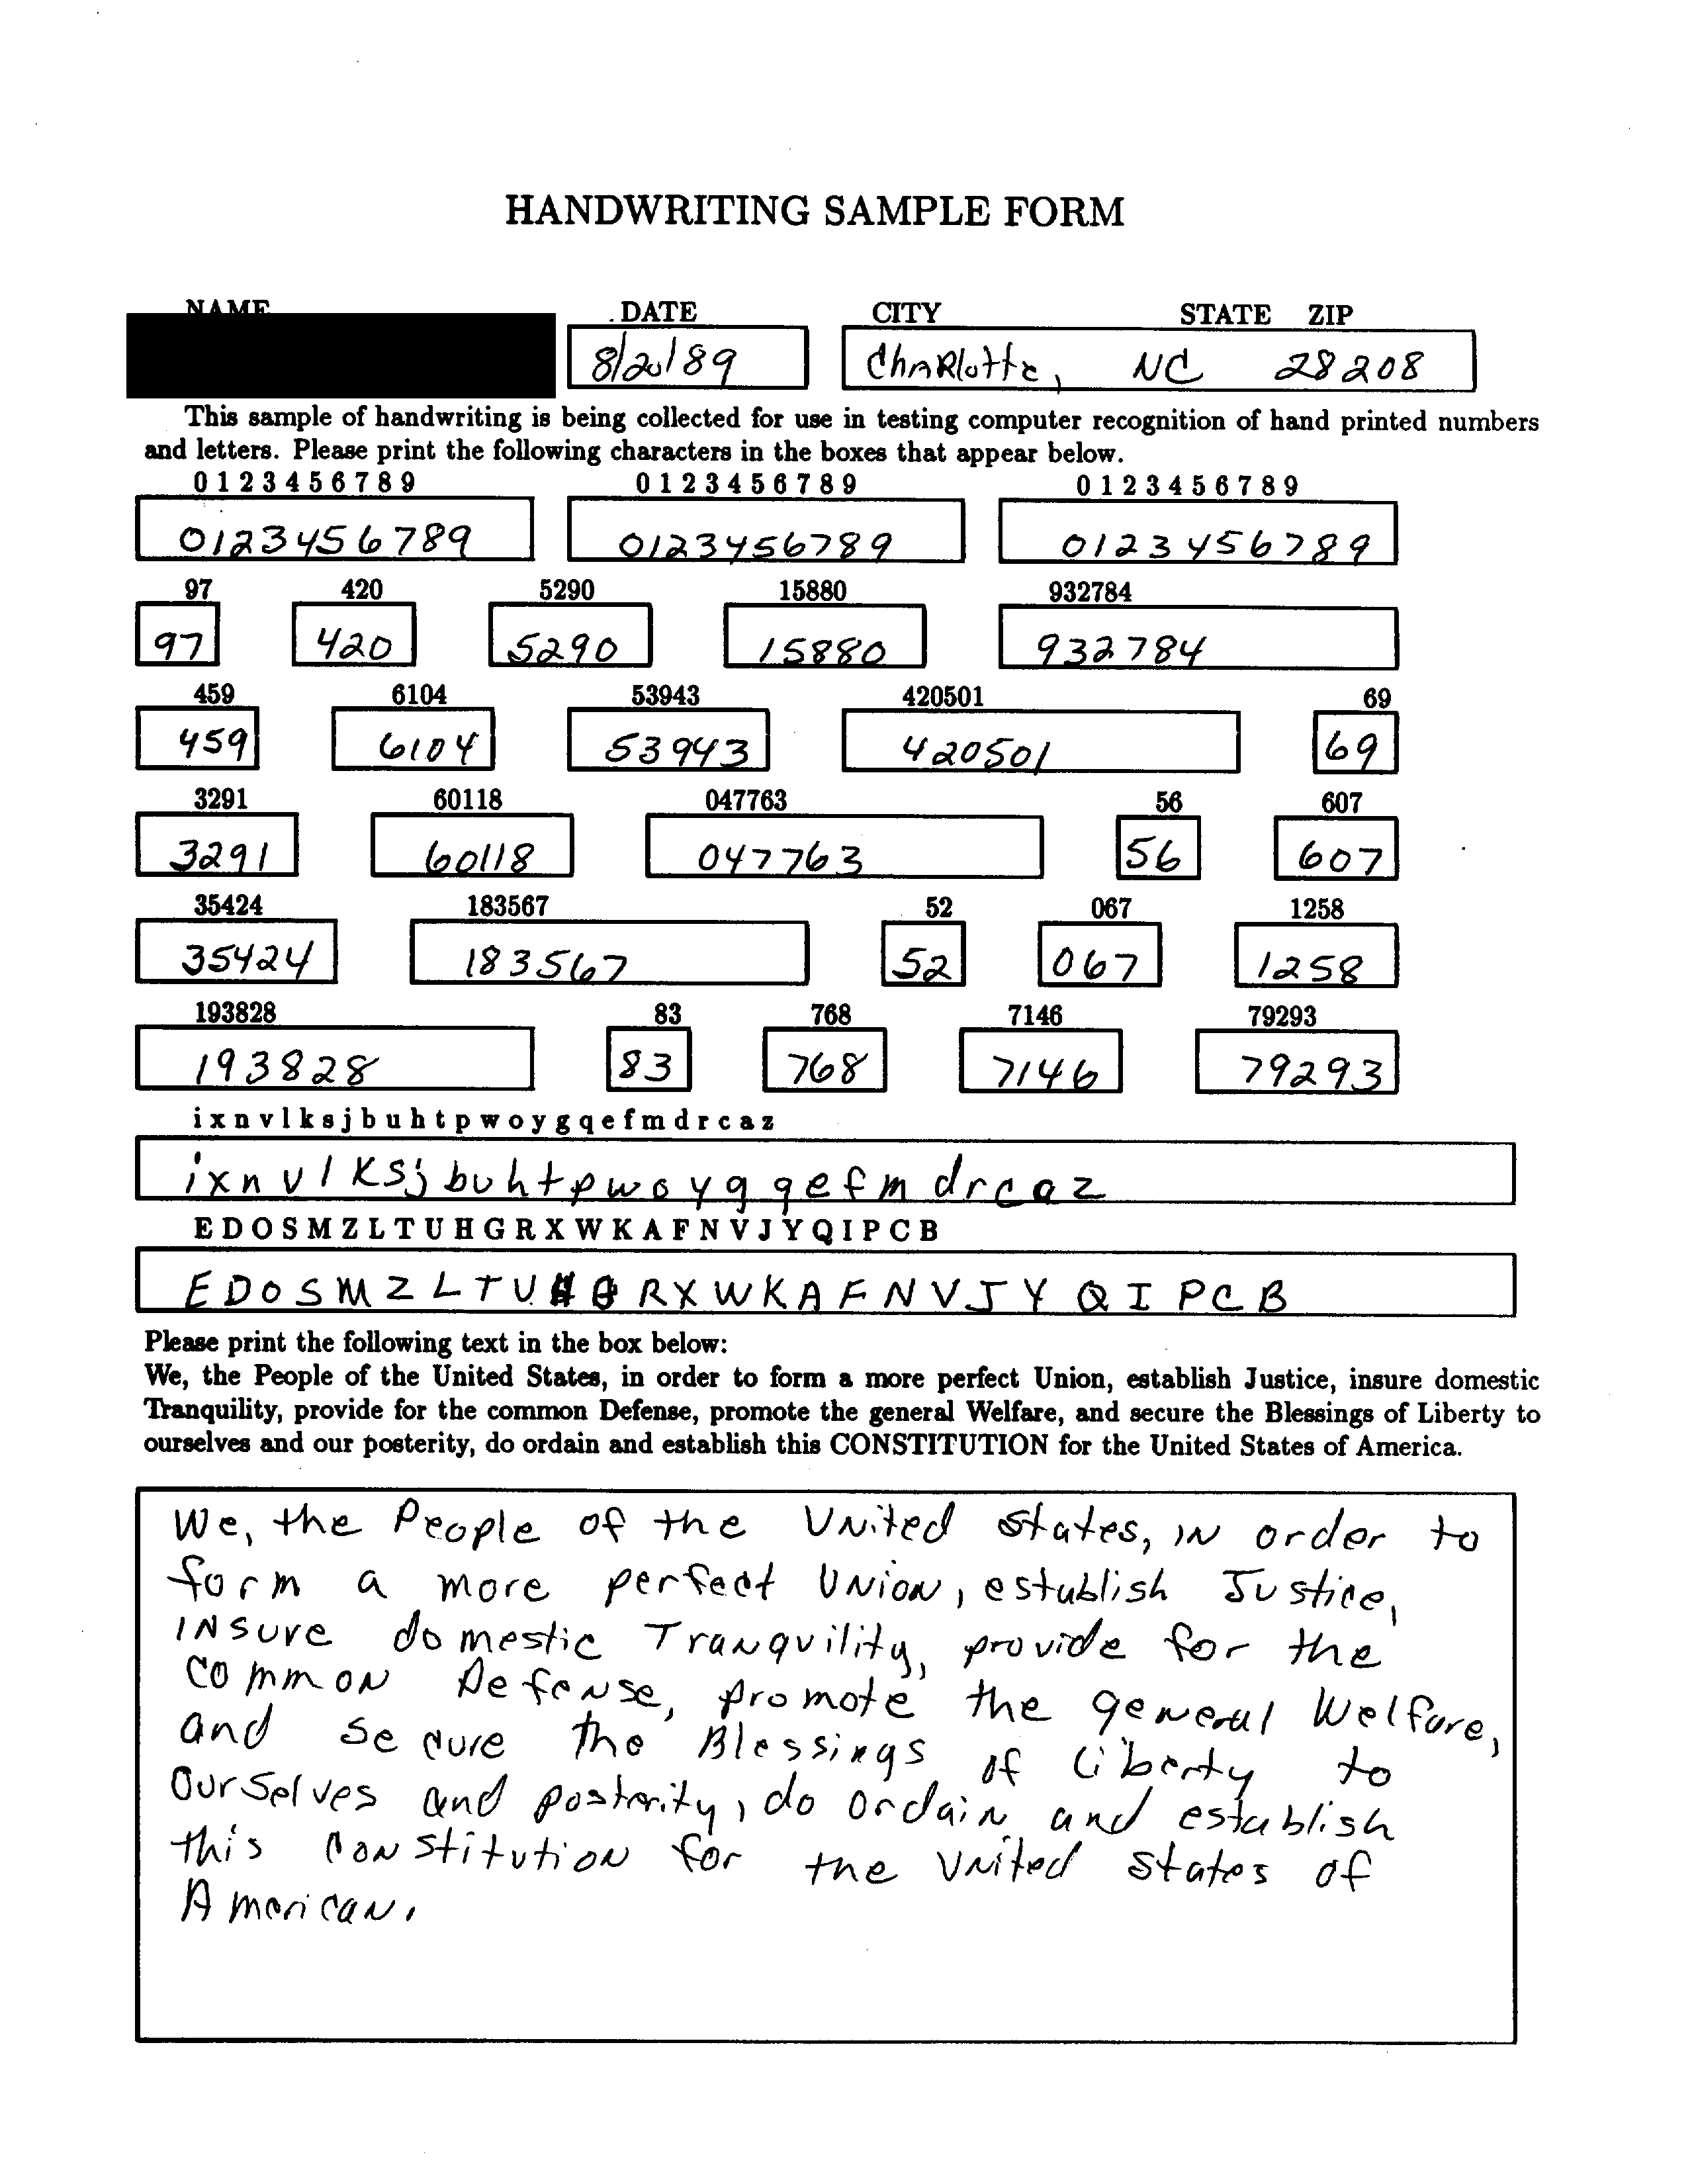 HANDWRITING SAMPLE FORM
NAME DATE CITY STATE ZIP
8/20/89 ChARlotte, NC 28208
This sample of handwriting is being collected for use in testing computer recognition of hand printed numbers
and letters. Please print the following characters in the boxes that appear below.
0 1 2 3 4 5 6 7 8 9 0 1 2 3 4 5 6 7 8 9 0 1 2 3 4 5 6 7 8 9
0123456789 0123456789 0123456789
97 420 5290 15880 932784
97 420 5290 15880 932784
459 6104 53943 420501 69
459 6104 53943 420501 69
3291 60118 047763 56 607
3291 60118 047763 56 607
35424 183567 52 067 1258
35424 183567 52 067 1258
193828 83 768 7146 79293
193828 83 768 7146 79293
i x n v l k s j b u h t p w o y g q e f m d r c a z
i x n v l k s j b u h t p w o y g q e f m d r c a z
E D O S M Z L T U H G R X W K A F N V J Y Q I P C B
E D O S M Z L T U H G R X W K A F N V J Y Q I P C B
Please print the following text in the box below:
We, the People of the United States, in order to form a more perfect Union, establish Justice, insure domestic
Tranquility, provide for the common Defense, promote the general Welfare, and secure the Blessings of Liberty to
ourselves and our posterity, do ordain and establish this CONSTITUTION for the United States of America.
We, the People of the United States, in order to
form a more perfect Union, establish Justice,
insure domestic Tranquility, provide for the
common Defense, promote the general Welfare,
and secure the Blessings of Liberty to
ourselves and posterity, do ordain and establish
this constitution for the United States of
American.